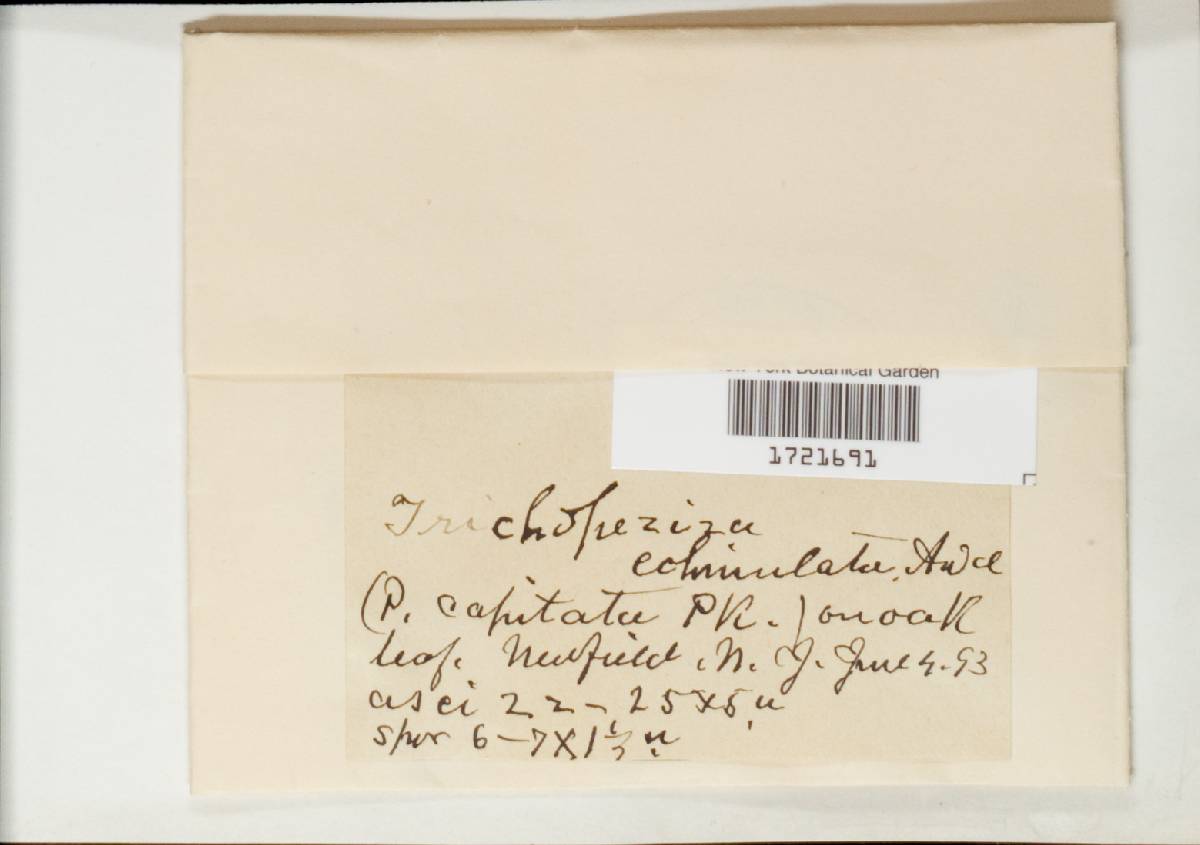 New York Botanical Garden
1721691
Trichopeziza
echinulata. Awd
(P. capitata PK.) on oak
leaf. Newfield, N. J. June 4. 93
asci 22–25x5 u
spor 6–7X1⅓ u